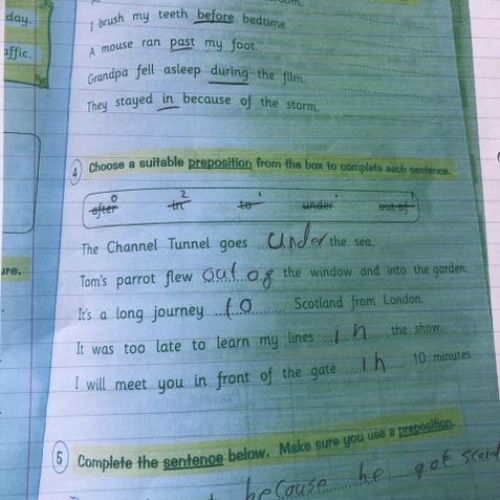 day.
affic.
I brush my teeth before bedtime.
A mouse ran past my foot.
Grandpa fell asleep during the film.
They stayed in because of the storm.
4 Choose a suitable preposition from the box to complete each sentence.
0 2
after in to under out of
The Channel Tunnel goes ... under the sea.
Tom's parrot flew out of the window and into the garden.
It's a long journey ... to ... Scotland from London.
It was too late to learn my lines ... in ... the show.
I will meet you in front of the gate ... in ... 10 minutes.
ure.
5 Complete the sentence below. Make sure you use a preposition.
because he got